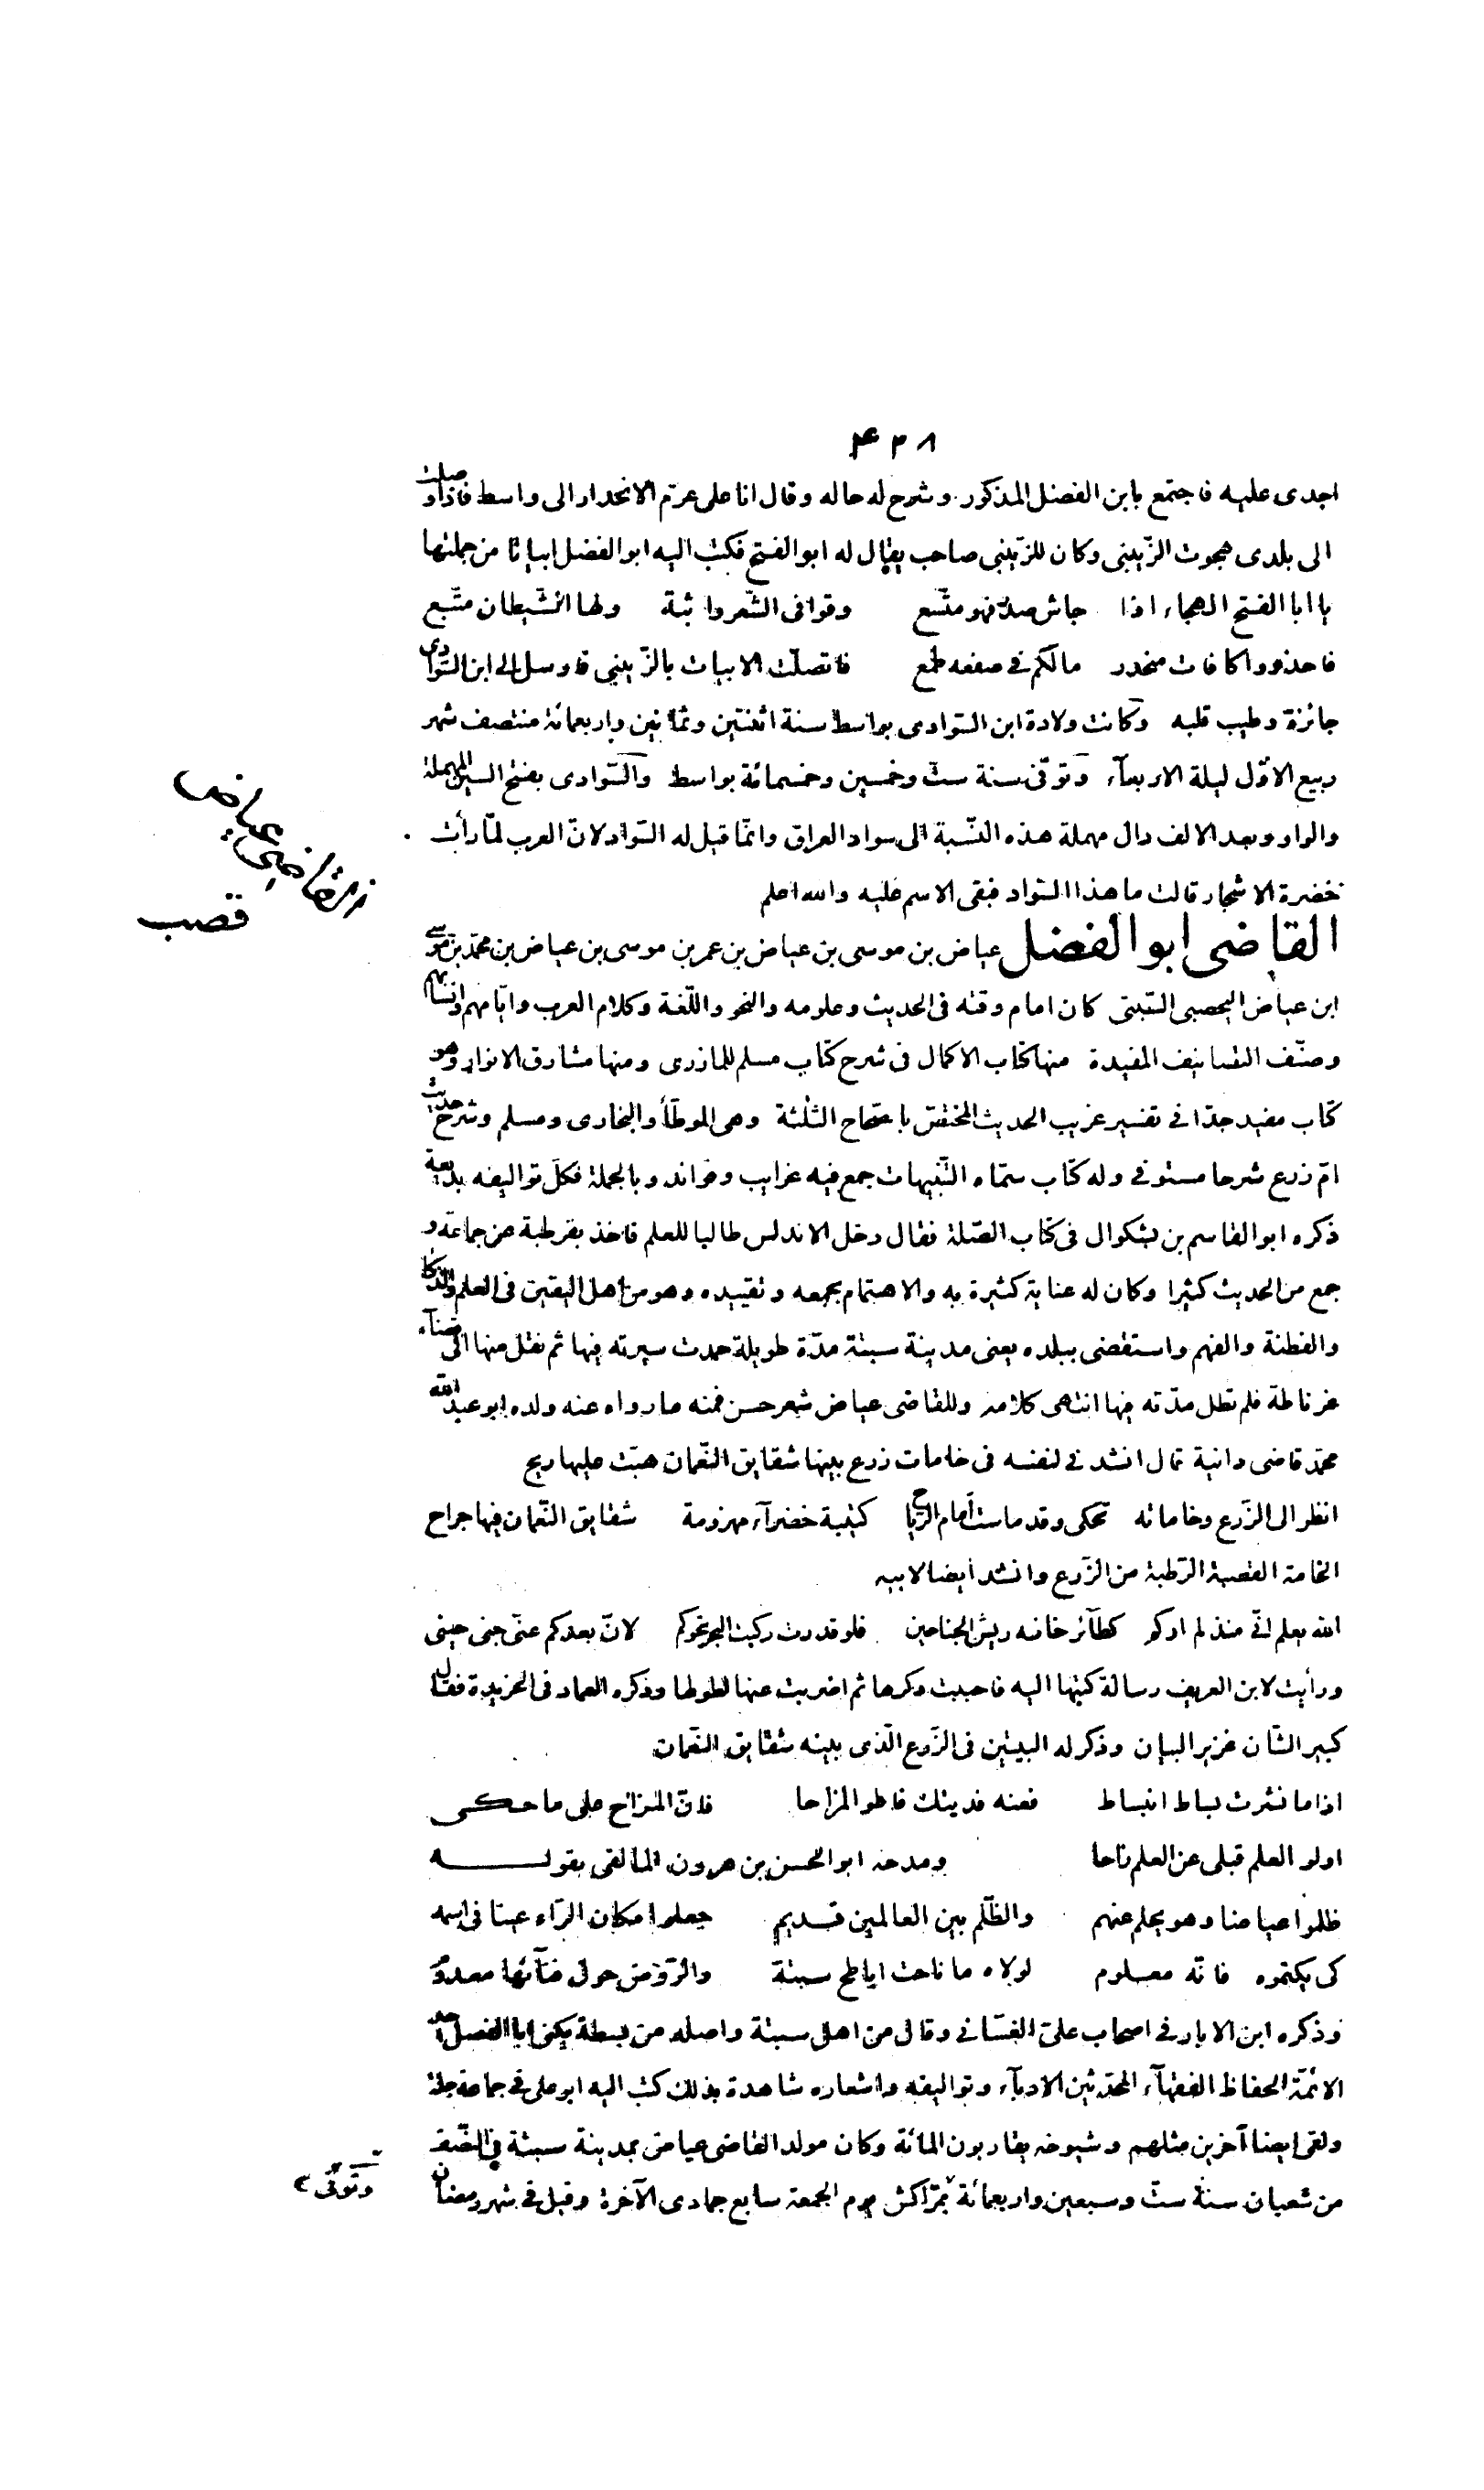 ۴۲۸
اجدى عليه فاجتمع بابن الفضل المذكور وشرح له حاله وقال انا على عزم الانحدار الى واسط فاذا وصلت
الى بلدى هجوت الزّينبى وكان للزّينبى صاحب يقال له ابو الفتح فكتب اليه ابو الفضل ابياتا من جملتها
يا ابا الفتح الهجاء اذا جاش صدر فهو متّسع وقوافى الشّعر واثبة ولها الشّيطان متّبع
فاحذروا كافات منحدر مالكم فى صفعه طمع فاتصلت الابيات بالزّينبى فارسل الى ابن السّوادى
جائزة وطيب قلبه وكانت ولادة ابن السّوادى بواسط سنة اثنتين وثمانين واربعمائة منتصف شهر
ربيع الاوّل ليلة الاربعآء وتوفّى سنة ستّ وخمسين وخمسمائة بواسط والسّوادى بفتح السين المهملة
والواو وبعد الالف دال مهملة هذه النّسبة الى سواد العراق وانّما قيل له السّواد لانّ العرب لمّا رأت
خضرة الاشجار قالت ما هذا السّواد فبقى الاسم عليه والله اعلم
القاضى ابو الفضل عياض بن موسى بن عياض بن عمر بن موسى بن عياض بن محمّد بن موسى
ابن عياض اليحصبى السّبتى كان امام وقته فى الحديث وعلومه والنحو واللّغة وكلام العرب وايّامهم وانسابهم
وصنّف التصانيف المفيدة منها كتاب الاكمال فى شرح كتاب مسلم للمازرى ومنها مشارق الانوار وهو
كتاب مفيد جدّا فى تفسير غريب الحديث المختصّ بالصّحاح الثّلثة وهى الموطّأ والبخارى ومسلم وشرح حديث
امّ زرع شرحا مستوفى وله كتاب سمّاه التّنبيهات جمع فيه غرايب وفوائد وبالجملة فكلّ تواليفه بديعة
ذكره ابو القاسم بن بشكوال فى كتاب الصّلة فقال دخل الاندلس طالبا للعلم فاخذ بقرطبة عن جماعة و
جمع من الحديث كثيرا وكان له عناية كثيرة به والاهتمام بجمعه وتقييده وهو من اهل اليقين فى العلم والذّكاء
والفطنة والفهم واستقضى ببلده يعنى مدينة سبتة مدّة طويلة حمدت سيرته فيها ثم نقل منها الى قضآء
غرناطة فلم تطل مدّته فيها انتهى كلامه وللقاضى عياض شعر حسن فمنه ما رواه عنه ولده ابو عبد الله
محمّد قاضى دانية قال انشدنى لنفسه فى خامات زرع بينها شقايق النّعمان هبّت عليها ريح
انظر الى الزّرع وخاماته تحكى وقد ماست امام الرّياح كتيبة خضرآء مهزومة شقايق النّعمان فيها جراح
الخامة القصبة الرّطبة من الزّرع وانشد ايضا لابيه
الله يعلم انّى منذ لم اركم كطآئر خانه ريش الجناحين فلو قدرت ركبت البحر نحوكم لانّ بعدكم عنّى جنى حينى
ورأيت لابن العريف رسالة كتبها اليه فاحببت ذكرها ثم اضربت عنها لطولها وذكره العماد فى الخريدة فقال
كبير الشّان غزير البيان وذكر له البيتين فى الزّرع الّذى بينه شقايق النّعمان
اذا ما نشرت بساط انبساط فعنه فديتك فاطو المزاحا فانّ المزاح على ما حكى
اولو العلم قبلى عن العلم زاحا ومدحه ابو الحسن بن هرون المالقى بقوله
ظلموا عياضا وهو يحلم عنهم والظّلم بين العالمين قديم جعلوا مكان الرّاء عينا فى اسمه
كى يكتموه فانّه معلوم لولاه ما ناحت اباطح سبتة والرّوض حول فنآئها معدوم
وذكره ابن الابار فى اصحاب علىّ الغسّانى وقال من اهل سبتة واصله من بسطة يكنى ابا الفضل احد
الائمّة الحفاظ الفقهآء المحدّثين الادبآء وتواليفه واشعاره شاهدة بذلك كتب اليه ابو على فى جماعة جلة
ولقى ايضا آخرين مثلهم وشيوخه يقاربون المائة وكان مولد القاضى عياض بمدينة سبتة فى النّصف
من شعبان سنة ستّ وسبعين واربعمائة بمرّاكش يوم الجمعة سابع جمادى الآخرة وقيل فى شهر رمضان
وتوفّى
القاضى عياض
قصب